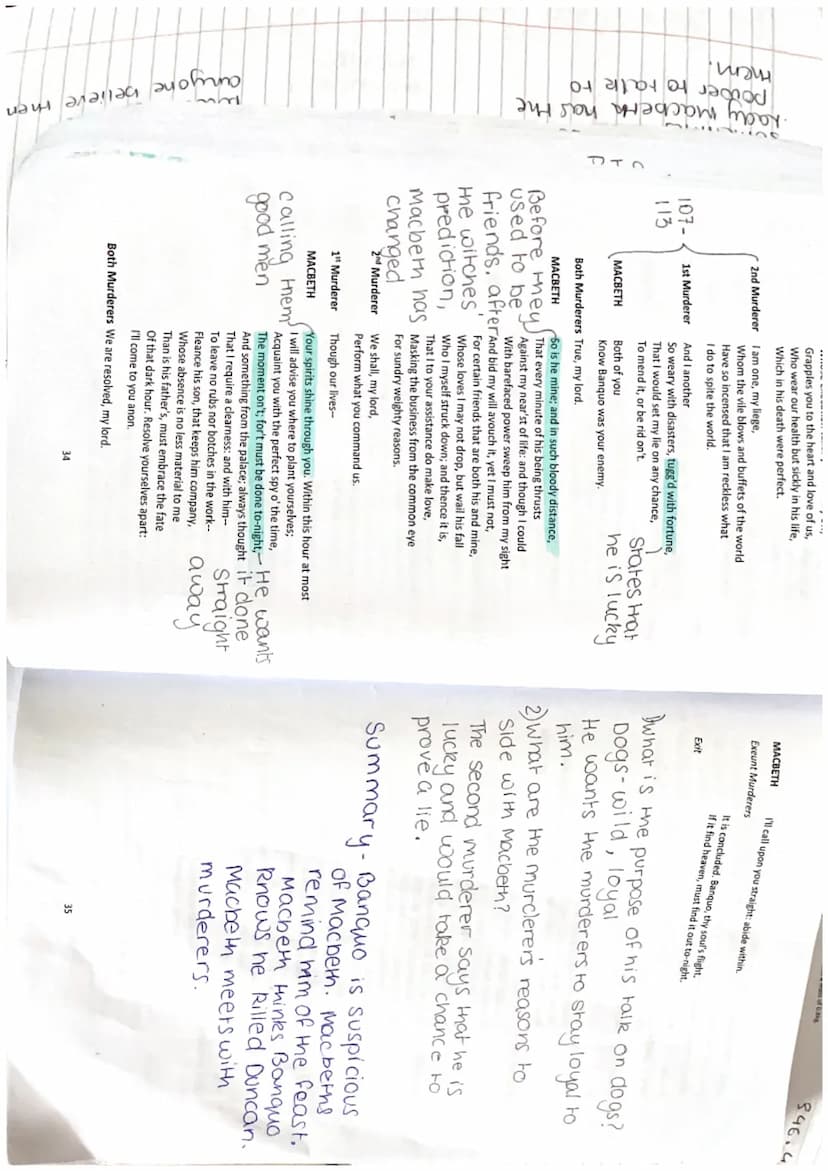 Grapples you to the heart and love of us,
Who wear our health but sickly in his life,
Which in his death were perfect.
2nd Murderer I am one, my liege,
Whom the vile blows and buffets of the world
Have so incensed that I am reckless what
I do to spite the world.
107-
113
1st Murderer And I another
So weary with disasters, tugg'd with fortune,
That I would set my lie on any chance,
To mend it, or be rid on't.
States that
he is lucky
MACBETH Both of you
Know Banquo was your enemy.
Both Murderers True, my lord.
MACBETH So is he mine; and in such bloody distance,
That every minute of his being thrusts
Against my near'st of life: and though I could
With barefaced power sweep him from my sight
And bid my will avouch it, yet I must not,
For certain friends that are both his and mine,
Whose loves I may not drop, but wail his fall
Who I myself struck down; and thence it is,
That I to your assistance do make love,
Masking the business from the common eye
For sundry weighty reasons.
Before they
used to be
friends. after
the witches'
prediction,
Macbeth has
changed
2nd Murderer We shall, my lord,
Perform what you command us.
1st Murderer Though our lives--
MACBETH Your spirits shine through you. Within this hour at most
I will advise you where to plant yourselves;
Acquaint you with the perfect spy o' the time,
The moment on't; for't must be done to-night,
And something from the palace; always thought
That I require a clearness: and with him--
To leave no rubs nor botches in the work--
Fleance his son, that keeps him company,
Whose absence is no less material to me
Than is his father's, must embrace the fate
Of that dark hour. Resolve yourselves apart:
I'll come to you anon.
calling them
good men
He wants
it done
straight
away
Both Murderers We are resolved, my lord.
34
MACBETH I'll call upon you straight: abide within.
Exeunt Murderers
It is concluded. Banquo, thy soul's flight,
If it find heaven, must find it out to-night.
Exit
1) What is the purpose of his talk on dogs?
Dogs - wild, loyal
He wants the murderers to stay loyal to
him.
2) What are the murderer's reasons to
side with Macbeth?
The second murderer says that he is
lucky and would take a chance to
prove a lie.
Summary - Banquo is suspicious
of Macbeth. Macbeths
remind him of the feast.
Macbeth thinks Banquo
knows he killed Duncan.
Macbeth meets with
murderers.
35
lady macbeth has the
power to talk to
them.
anyone believe them